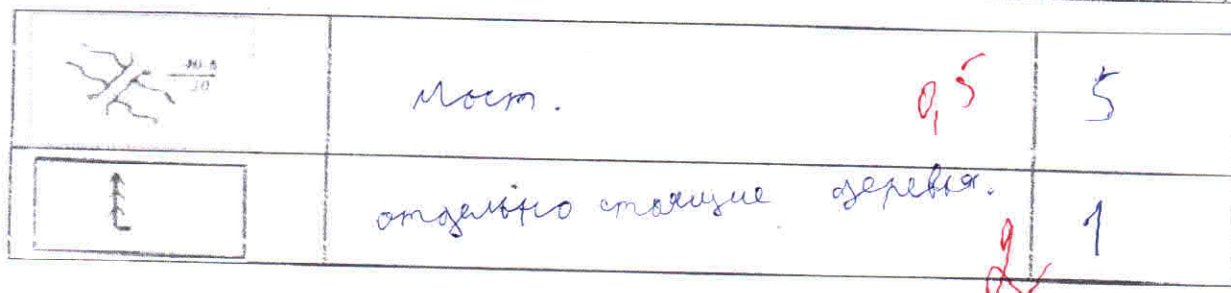 мост. 0,5 5
отдельно стоящие деревья. 2 1